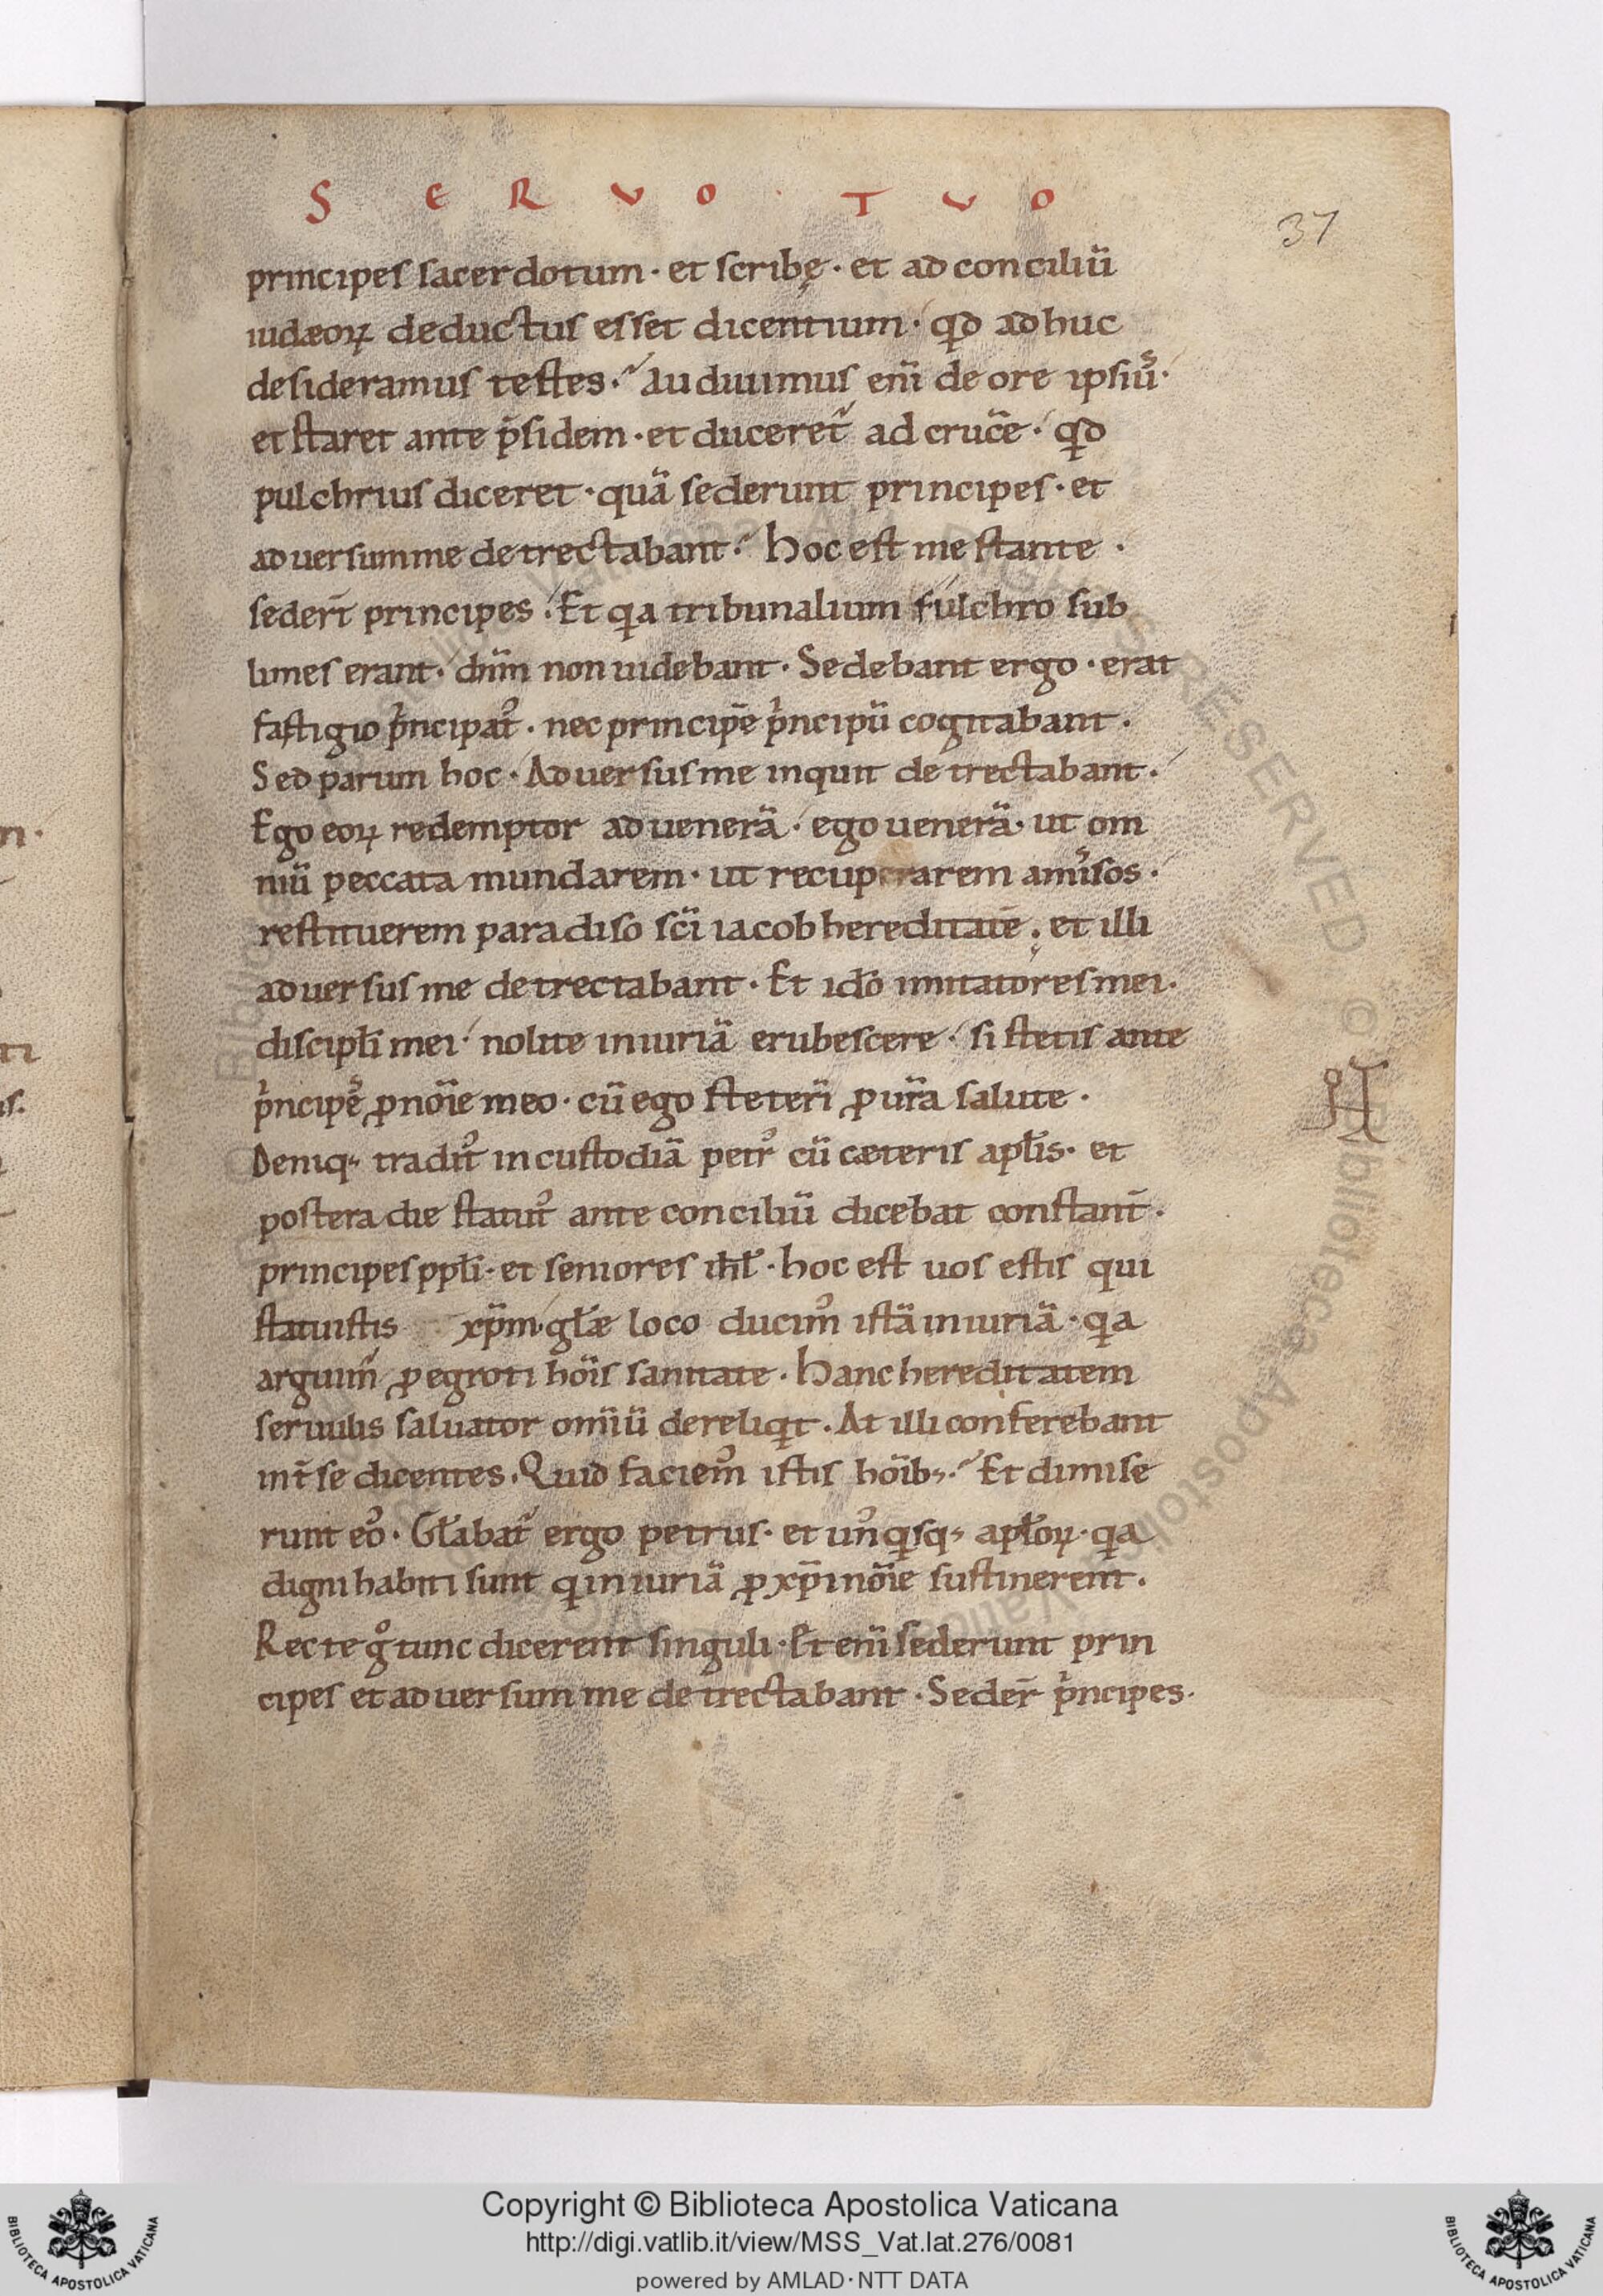 S E R V O · T V O
37
principes sacerdotum · et scribę · et ad conciliū
iudæoꝝ deductus esset dicentium · qd adhuc
desideramus testes · Audiuimus eni̅ de ore ipsiuˢ ·
et staret ante p̄sidem · et duceret̄ ad cruce̅ · qd
pulchrius diceret · qua̅ sederunt principes · et
aduersum me detrectabant · hoc est me stante ·
seder̅t principes · Et qa tribunalium fulchro sub
limes erant · dn̅m non uidebant · Sedebant ergo · erat
fastigio pͥncipatꝰ · nec principe̅ pͥncipu̅ cogitabant ·
Sed parum hoc · Aduersus me inquit detrectabant ·
Ego eoꝝ redemptor aduenera̅ · ego uenera̅ · ut om
niu̅ peccata mundarem · ut recuperarem amiˢsos ·
restituerem paradiso sc̅i iacob hereditate̅ · et illi
aduersus me detrectabant · Et ido̅ imitatores mei ·
discipl̅i mei · nolite iniuria̅ erubescere · si stetis ante
pͥncipeˢ ꝓ no̅ie meo · cu̅ ego steteri̅ ꝓ ur̅a salute ·
Deniq; tradit᷒ in custodia̅ petrꝰ cu̅ cæteris apl̅is · et
postera die statut᷒ ante conciliu̅ dicebat constant̅ ·
principes ppl̅i · et seniores ihl̅ · hoc est uos estis qui
statuistis xp̅m · gl̅æ loco ducimꝰ ista̅ iniuria̅ · qa
arguim̅ ꝓ egroti ho̅is sanitate · Hanc hereditatem
seruulis saluator omi̅u̅ dereliqͥt · At illi conferebant
int̅ se dicentes · Quid faciemꝰ istis ho̅ib; · Et dimise
runt eoꝰ · Gl̅abat̅ ergo petrus · et unꝰqͥsq; apl̅oꝝ · qa
digni habiti sunt q iniuria̅ ꝓ xp̅i no̅ie sustinerent ·
Recte gͦ tunc dicerent singuli · Et eni̅ sederunt prin
cipes et aduersum me detrectabant · Seder̅ pͥncipes ·
Copyright © Biblioteca Apostolica Vaticana
http://digi.vatlib.it/view/MSS_Vat.lat.276/0081
powered by AMLAD·NTT DATA
BIBLIOTECA APOSTOLICA VATICANA
BIBLIOTECA APOSTOLICA VATICANA